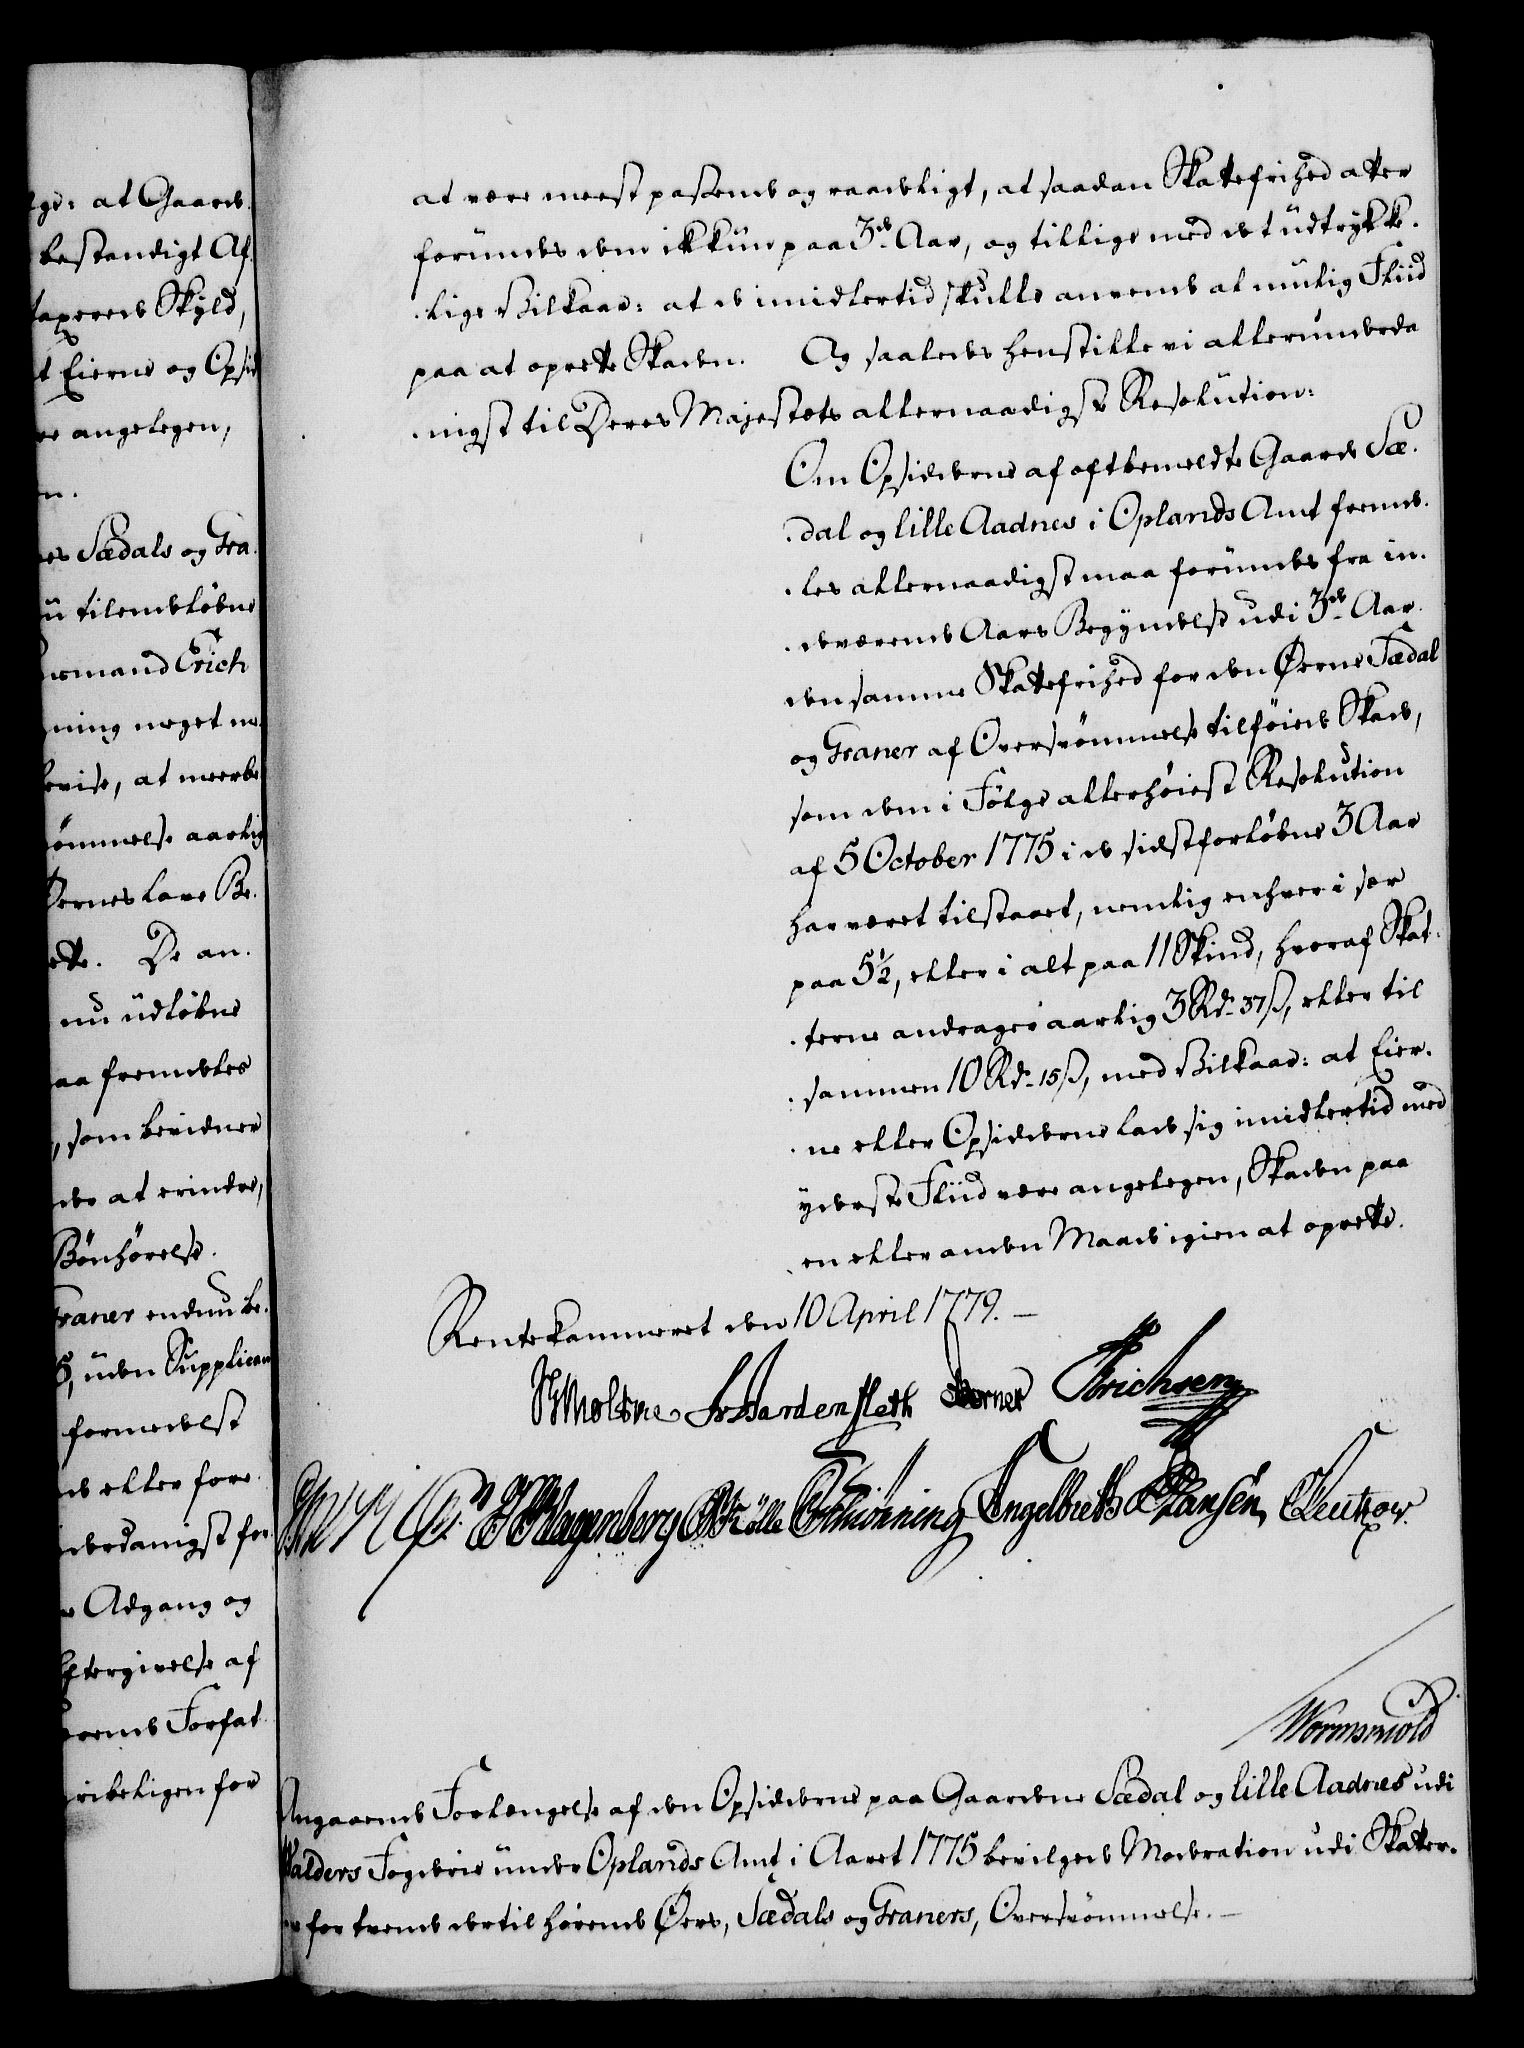 lge: at Gaard
bestandigt Af
taxerede Skyld,
t Eierne og Opsid
re angelegen,
n.
es Sædals og Gra
u tilendeløbne
Erich
ning noget
bevise, at meerbe
ømmelse aarlig
Øernes lave Be
ette. De an
nu udløbne
aa fremdeles
, som bevidner
de at erindre,
Bønhørelse.
Graner endnu be
5, uden Supplican
formedelst
eller fore
derdanigst for
Adgang og
Eftergivelse af
Forfat
ribeligen for
at være meest passende og raadeligt, at saadan Skattefrihed atter
forundes dem ikkun paa 3de Aar, og tillige med det udtrykke-
-lige Vilkaar: at de imidlertid skulle anvende al mulig Fliid
paa at oprette Skaden. Og saaledes henstille vi allerunderda
-nigst til Deres Majestæts allernaadigste Resolution:
Om Opsidderne af oftbemeldte Gaarde Sæ-
-dal og lille Aadnes i Oplands Amt fremde-
-les allernaadigst maa forundes fra in-
-deværende Aars Begyndelse udi 3de Aar
den samme Skattefrihed for den Øerne Sædal
og Graner af Oversvømmelse tilføiede Skade,
som dem i Følge allerhøieste Resolution
af 5 October 1775 i de sidstforløbne 3 Aar
har været tilstaaet, nemlig enhver i sær
paa 5½, eller i alt paa 11 Skind, hvoraf Skat-
-terne andrager aarlig 3 Rd. 37 ß, eller til
-sammen 10 Rd. 15 ß, med Vilkaar: at Eier-
-ne eller Opsidderne lade sig imidlertid med
yderste Fliid være angelegen, Skaden paa
en eller anden Maade igien at oprette.
Rentekammeret den 10 April 1779. —
Moltke Fr Bardenfleth Berner Erichsen
Wagenberg Trölle Schiönning Engelbreth Hansen Leutzow.
Wormskiold
Angaaende Forlængelse af den Opsidderne paa Gaardene Sædal og lille Aadnes udi
Walders Fogderie under Oplands Amt i Aaret 1775 bevilgede Moderation udi Skatter-
for tvende dertil hørende Øers, Sædals og Graners, Oversvømmelse. —